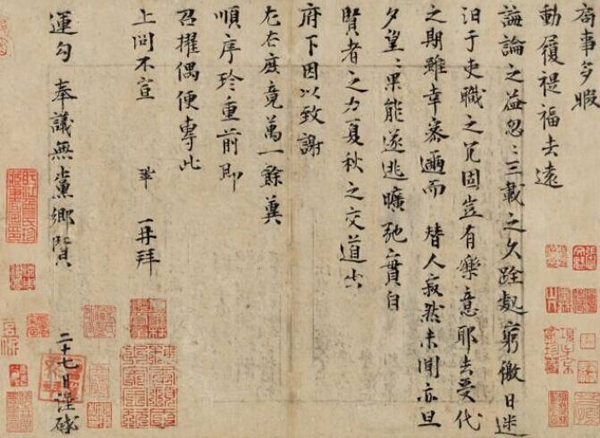 局事多暇
動履禔福去遠
誨論之益忽忽三載之久跧處窮徼日迷
汨于吏職之冗固豈有樂意耶去受代
之期雖幸密邇而替人寂然未聞亦旦
夕望望果能遂逃曠弛實自
賢者之力夏秋之交道出
府下因以致謝
左右庶竟萬一餘冀
順序珍重前即
召擢偶便專此
上問不宣 鞏 再拜
運勾 奉議無黨鄉賢 二十七日謹啟